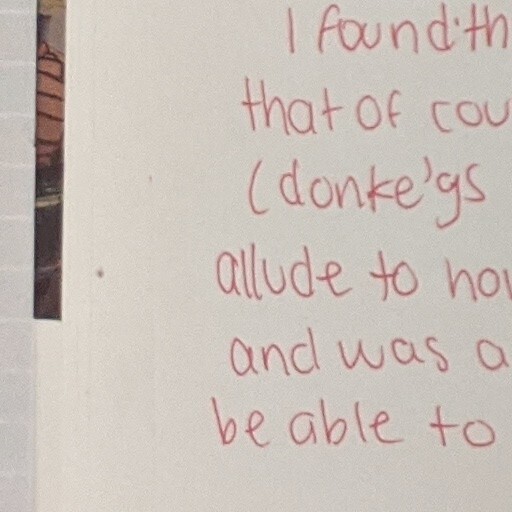 I found th
that of cou
(donke'gs
allude to how
and was a
be able to